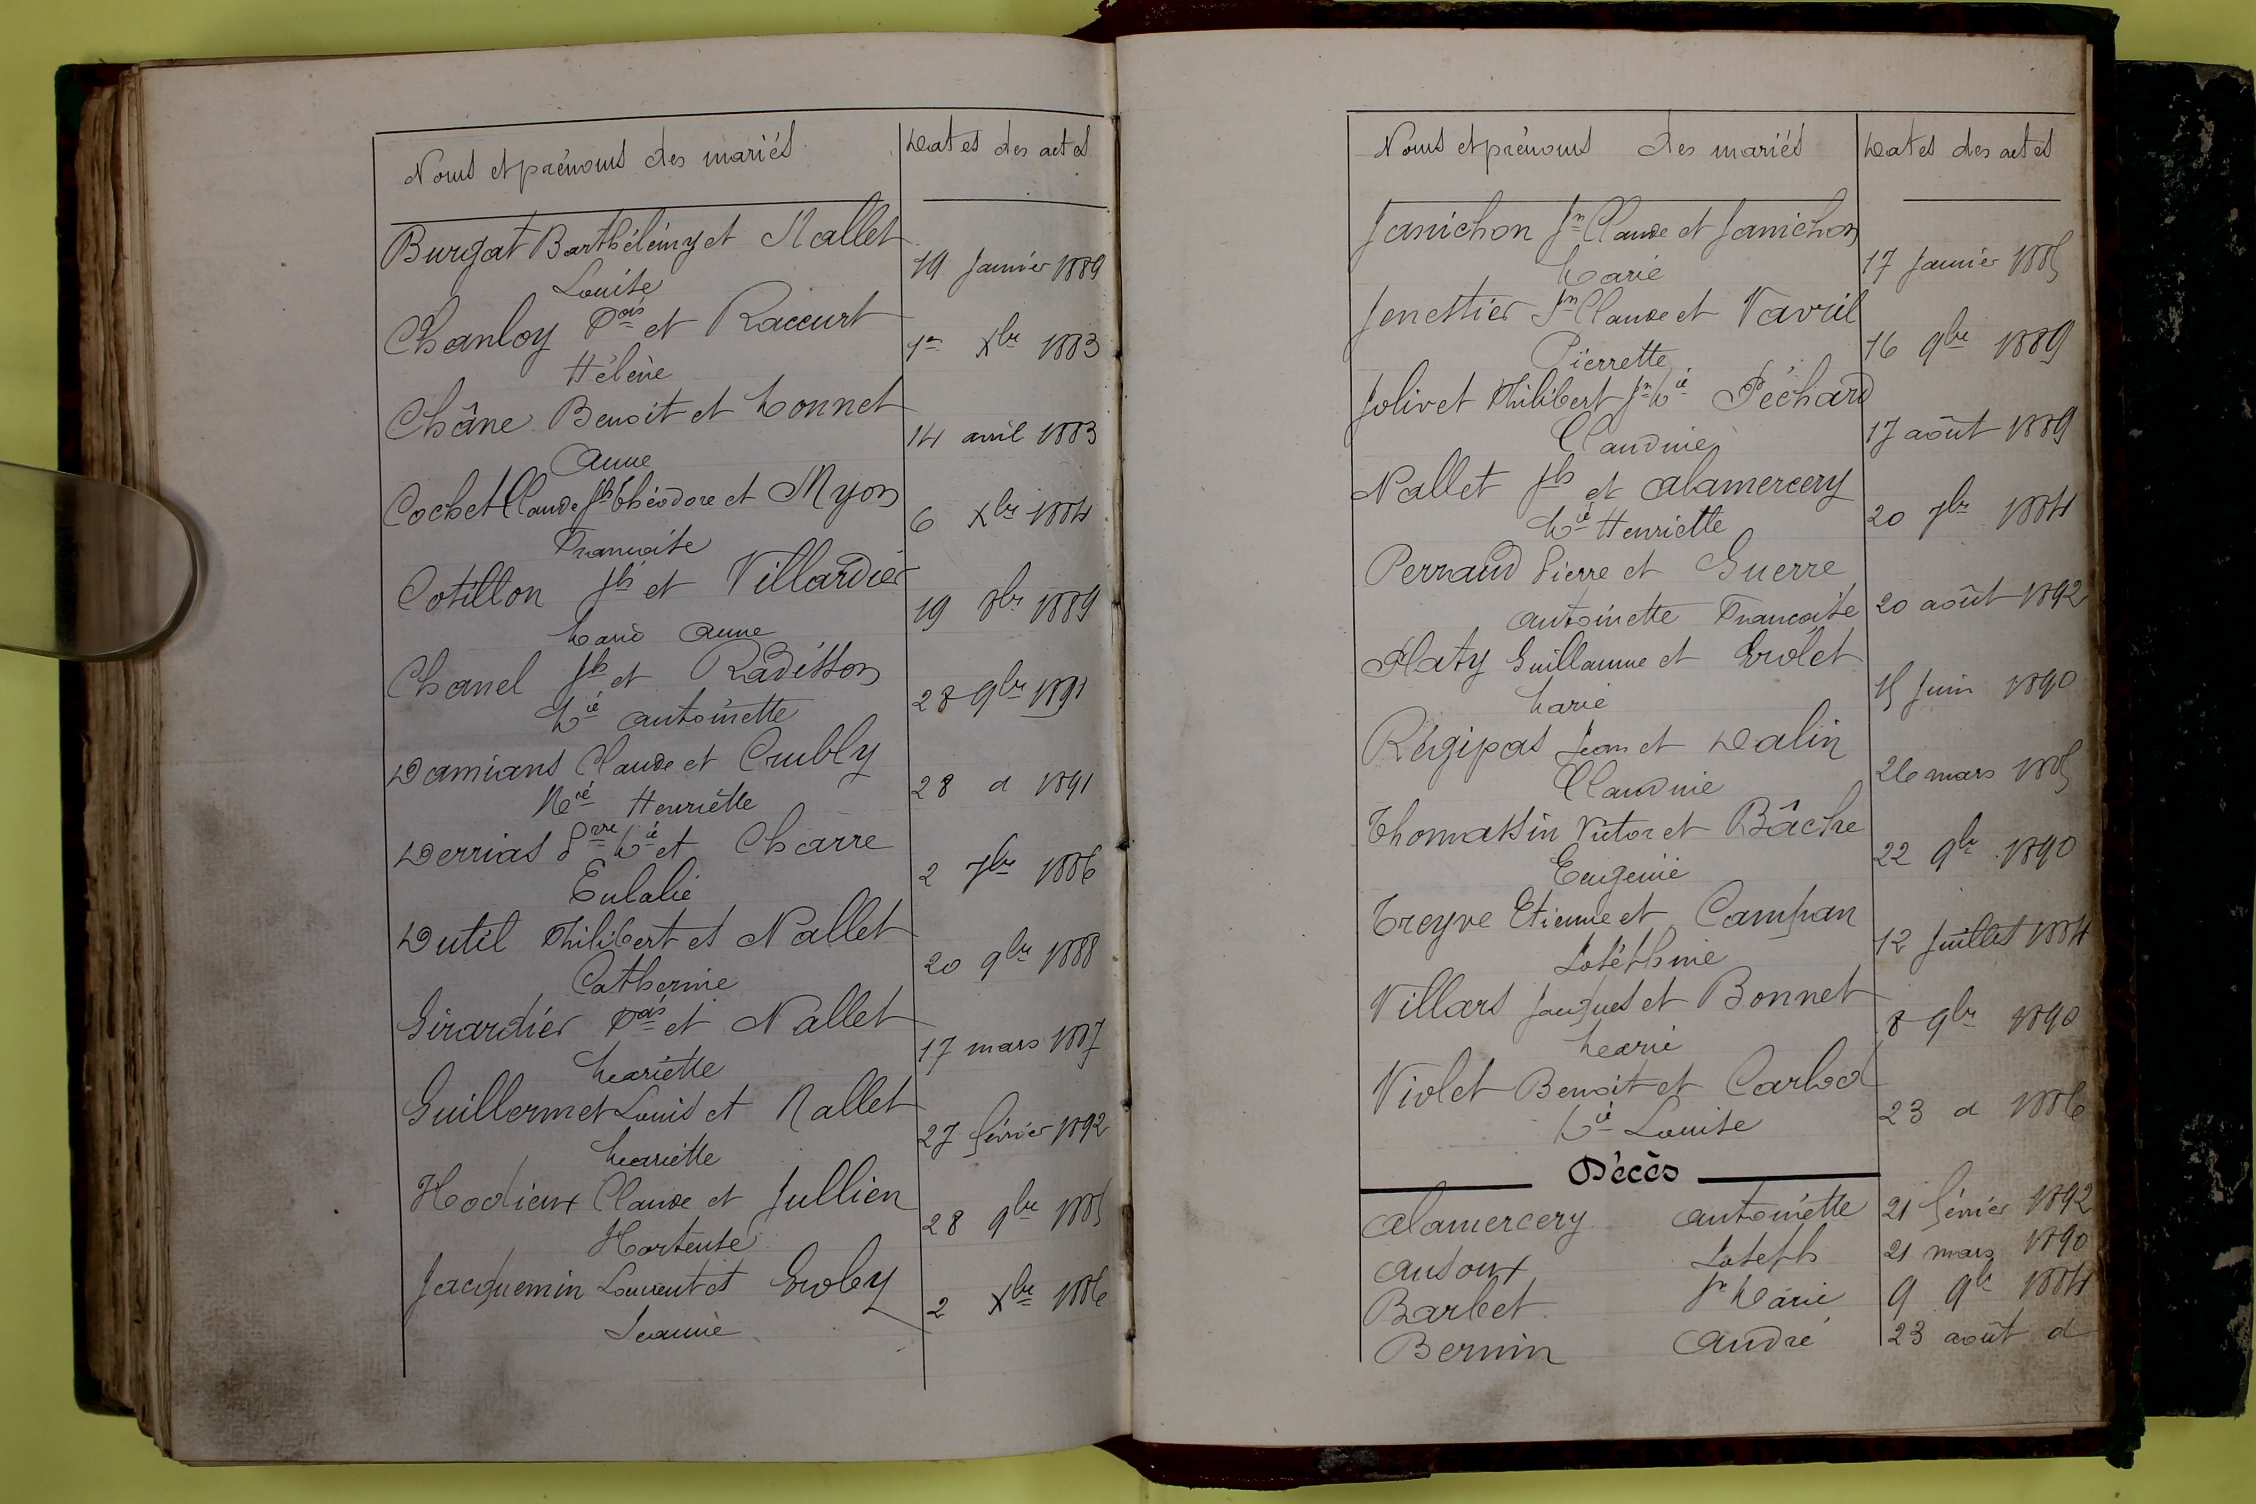 Noms et prénoms des mariés Dates des actes
Burgat Barthélémy et Nallet
Louise 19 Janvier 1889
Chanloy Fois et Raccurt
Hélène 1er Xbre 1883
Châne Benoit et Monnet
Anne 14 avril 1883
Cochet Claude Jh Théodore et Myon
Françoise 6 Xbre 1884
Cotillon Jh et Villardier
Marie Anne 19 8bre 1889
Chanel Jh et Radisson
Mie Antoinette 28 9bre 1891
Damians Claude et Crubly
Henriette 28 d 1891
Derrias Prre Mie et Charre
Eulalie 2 7bre 1886
Dutil Philibert et Nallet
Catherine 20 9bre 1888
Girardier Fois et Nallet
Mariette 17 mars 1887
Guillermet Louis et Nallet
Mariette 27 février 1892
Hodieux Claude et Jullien
Hortense 28 9bre 1885
Jacquemin Laurent et Evoley
Jeanne 2 Xbre 1886
Noms et prénoms des mariés Dates des actes
Janichon Jn Claude et Janichon
Marie 17 Janvier 1885
Jenettier Jn Claude et Vavril
Pierrette 16 9bre 1889
Jolivet Philibert Jn Mie Péchard
Claudine 17 août 1889
Nallet Jh et Alamercery
Mie Henriette 20 7bre 1884
Pernaud Pierre et Guerre
Antoinette Françoise 20 août 1892
Platy Guillaume et Evolet
Marie 15 Juin 1890
Régipas Jean et Dalin
Claudine 26 mars 1885
Thomassin Victor et Bâche
Eugénie 22 9bre 1890
Treyve Etienne et Campan
Joséphine 12 Juillet 1884
Villars Jacques et Bonnet
Marie 8 9bre 1890
Violet Benoit et Carlod
Mie Louise 23 d 1886
Décès
Alamercery Antoinette 21 février 1892
Audoux Joseph 21 mars 1890
Barbet Jn Marie 9 9bre 1884
Bernin André 23 août d